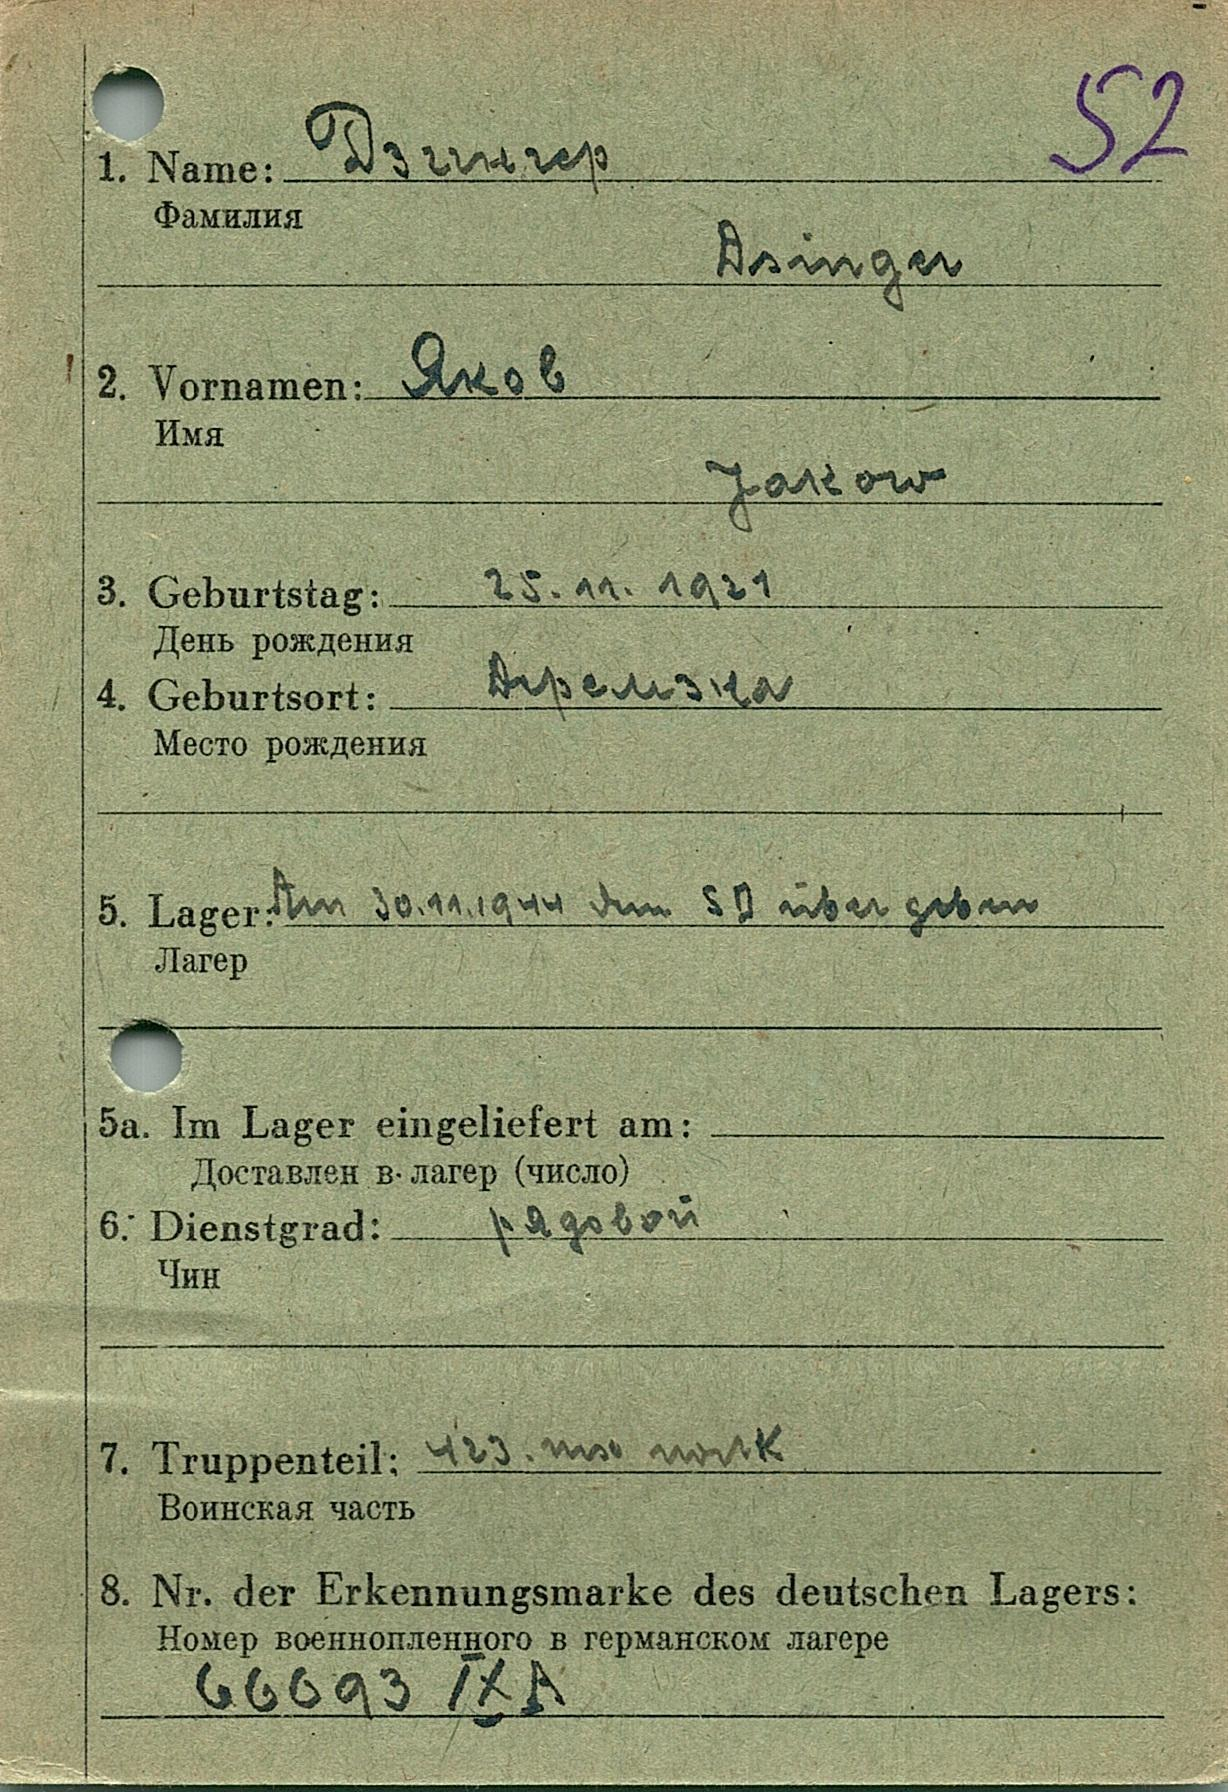 52
1. Name: Дзингер
Фамилия
Dsinger
2. Vornamen: Яков
Имя
Jakow
3. Geburtstag: 25.11.1921
День рождения
4. Geburtsort:
Место рождения
5. Lager: Am 30.11.1944 dem SD übergeben
Лагер
5a. Im Lager eingeliefert am:
Доставлен в лагер (число)
6. Dienstgrad: рядовой
Чин
7. Truppenteil: 423.
Воинская часть
8. Nr. der Erkennungsmarke des deutschen Lagers:
Номер военнопленного в германском лагере
66693 IX A